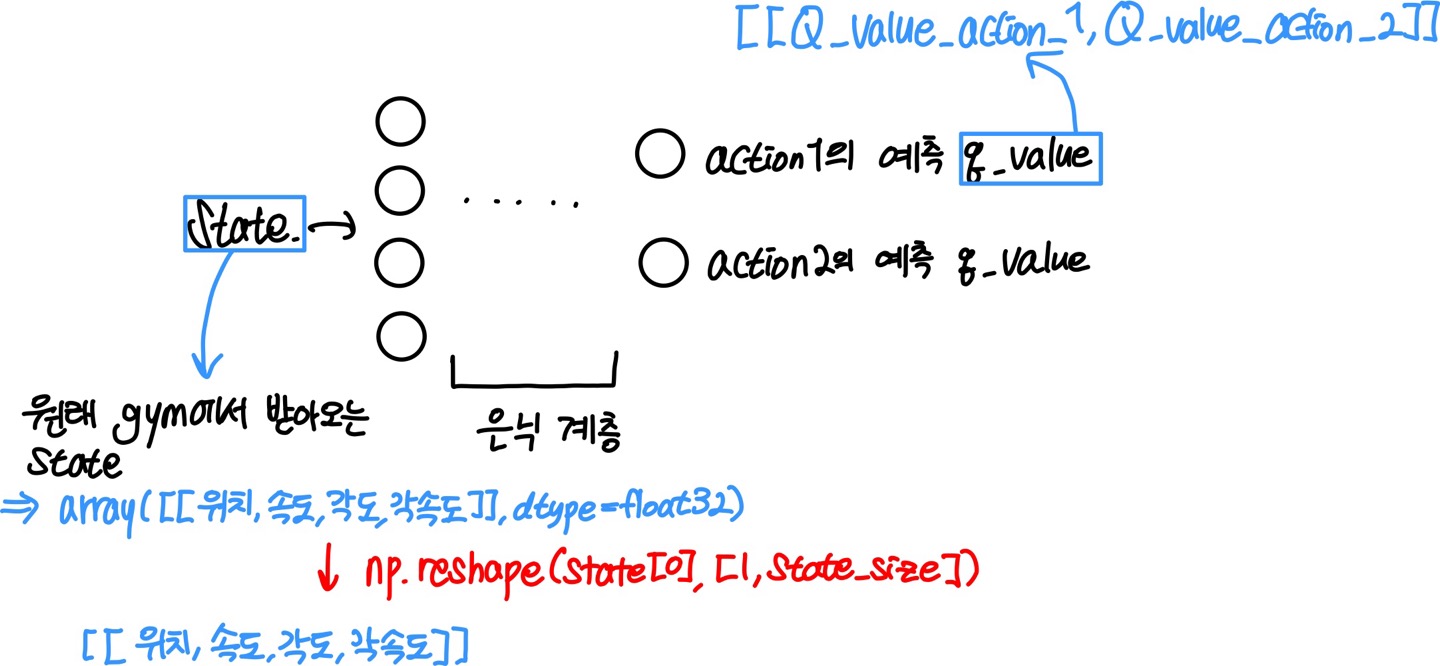 [[Q_value_action_1, Q_value_action_2]]
action1의 예측 q_value
State.
action2의 예측 q_value
원래 gym에서 받아오는
State
은닉 계층
⇒ array([[위치, 속도, 각도, 각속도]], dtype=float32)
↓ np.reshape(state[0], [1, state_size])
[[위치, 속도, 각도, 각속도]]